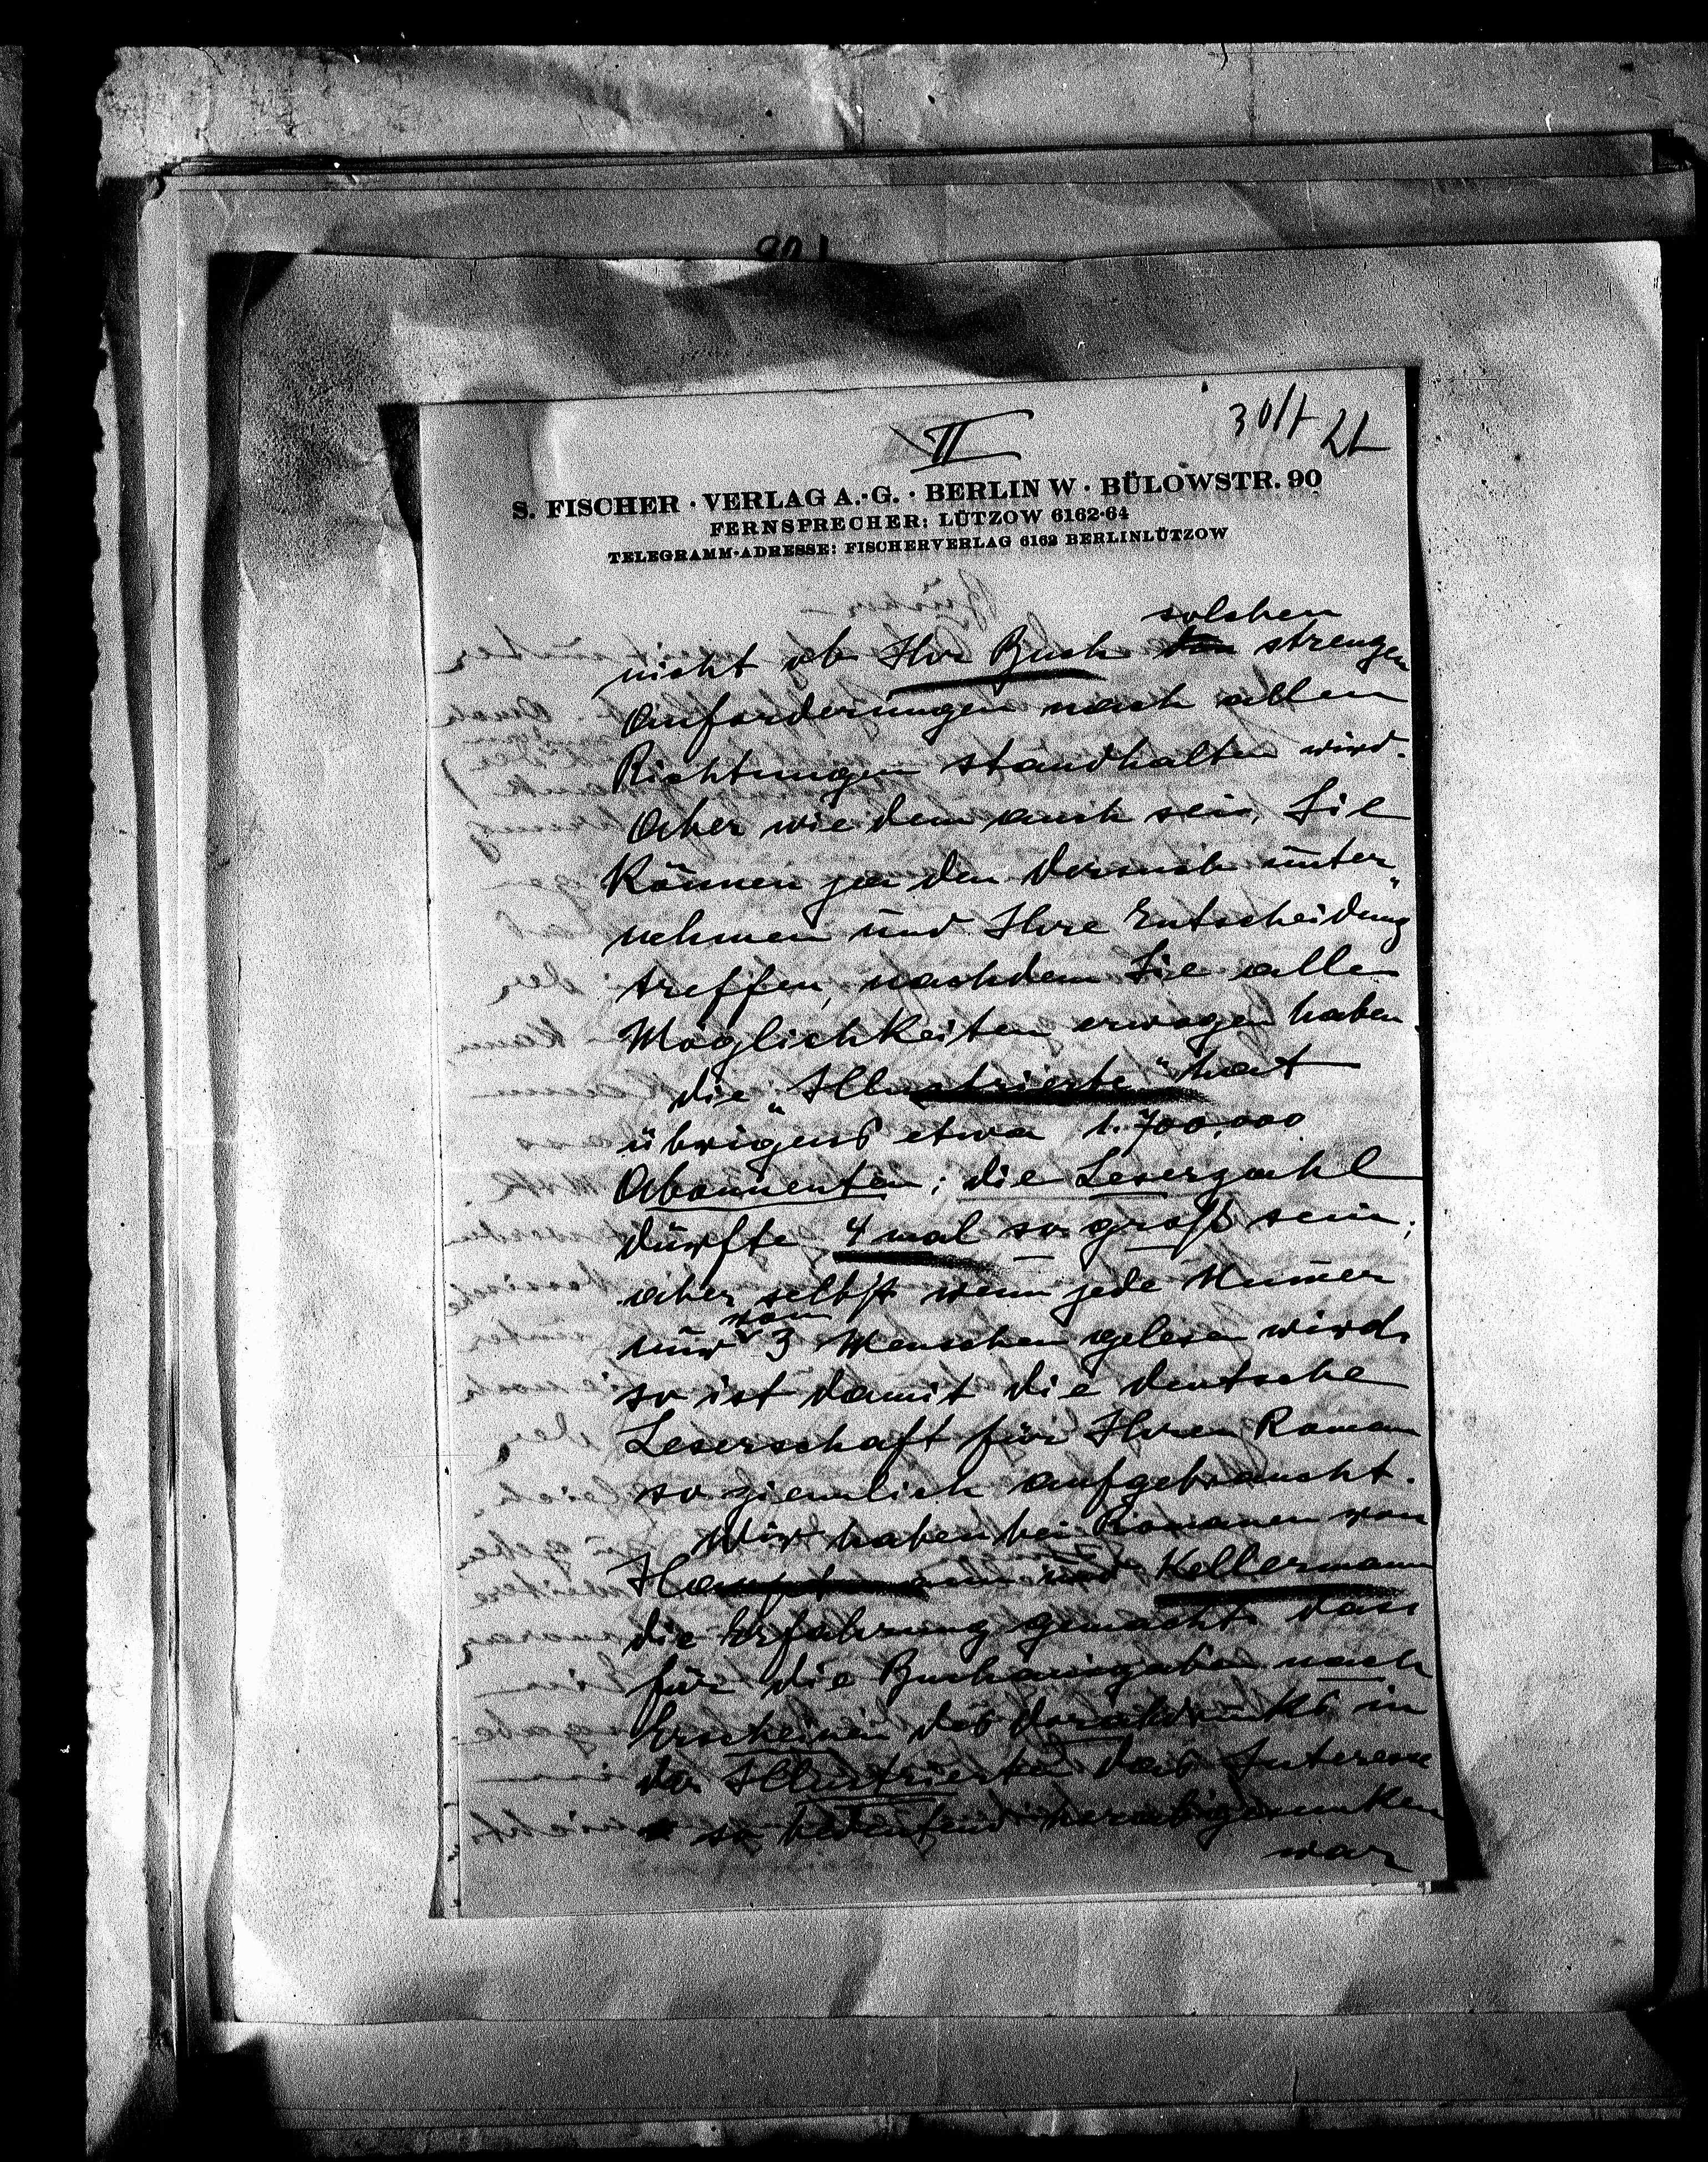 II
S. FISCHER · VERLAG A.-G. · BERLIN W · BÜLOWSTR. 90
FERNSPRECHER: LÜTZOW 6162-64
TELEGRAMM-ADRESSE: FISCHERVERLAG 6162 BERLINLÜTZOW
solchen
nicht ob Ihr Buch strengen
Anforderungen nach allen
Richtungen standhalten wird.
Aber wie dem auch sei, Sie
können ja den Versuch unter„
nehmen und Ihre Entscheidung
treffen, nachdem Sie alle
Möglichkeiten erwogen haben.
die „Illustrierte“ hat
übrigens etwa 1.700,000
Abonnenten; die Leserzahl
dürfte 4 mal so groß sein;
aber selbst wenn jede Numer
von
nur 3 Menschen gelesen wird,
so ist damit die deutsche
Leserschaft für Ihren Roman
so ziemlich aufgebraucht.
Wir haben bei Romanen von
Hauptmann und Kellermann
die Erfahrung gemacht dass
für die Buchausgaben nach
Erscheinen des Vorabdrucks in
der Illustrierten das Interesse
so bedeutend herabgesunken
war